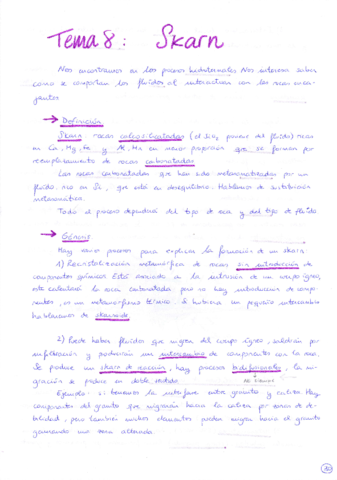 Tema 8: Skarn
Nos encontramos en los procesos hidrotermales. Nos interesa saber
como se comportan los fluidos al interactuar con las rocas encajantes
→ Definición
Skarn: rocas calcosilicatadas (el Si, proviene del fluido) ricas
en Ca, Mg, Fe y Al, Mn en menor proporción que se forman por
reemplazamiento de rocas carbonatadas
Las rocas carbonatadas que han sido metasomatizadas por un
fluido, rico en Si, que está en desequilibrio. Hablamos de sustitución
metasomática.
Todo el proceso dependerá del tipo de roca y del tipo de fluido
→ Génesis
Hay varios procesos para explicar la formación de un skarn
1) Recristalización metamórfica de rocas sin introducción de
componentes químicos. Está asociado a la intrusión de un cuerpo ígneo,
este calentará la roca carbonatada pero no hay introducción de componentes,
es un metamorfismo térmico. Si hubiera un pequeño intercambio
hablaremos de skarnoide.
2) Puede haber fluidos que migren del cuerpo ígneo, saldrán por
infiltración y producirán un intercambio de componentes con la roca.
Se produce un skarn de reacción, hay procesos bidifusionales, la migración
se produce en doble sentido.
Ejemplo: si tenemos la interfase entre granito y caliza. Hay
componentes del granito que migrarán hacia la caliza por zonas de debilidad,
pero también muchos elementos pueden migrar hacia el granito
generando una zona alterada.